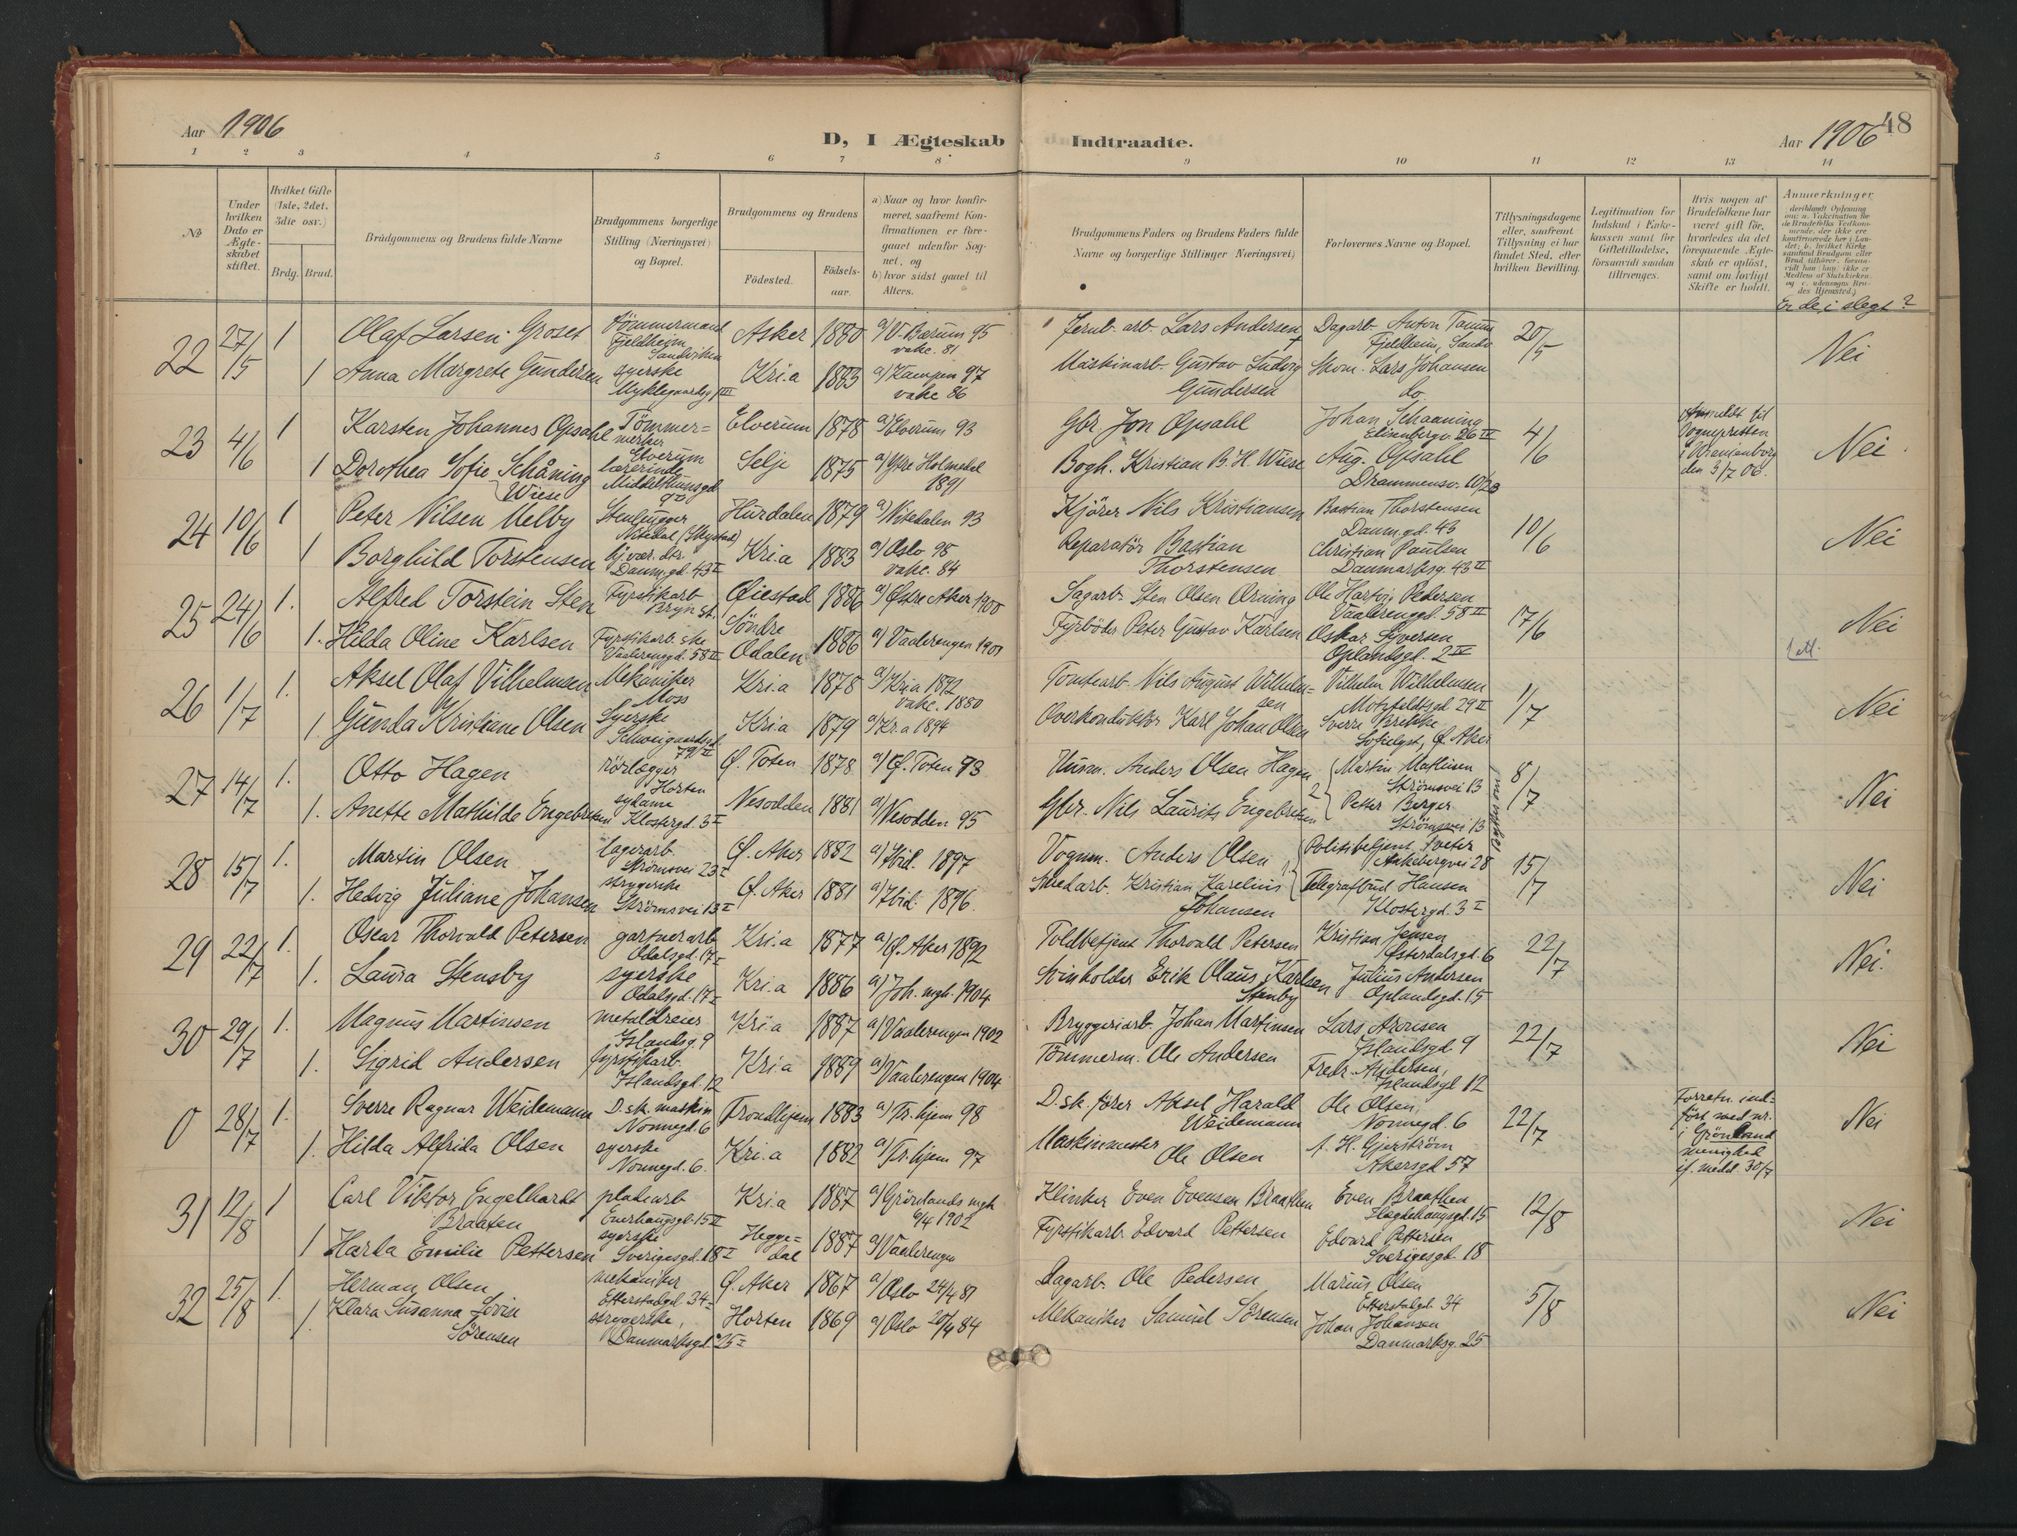 Aar 1906
D, I Ægteskab Indtraadte.
Aar 1906 48
1 2 3 4 5 6 7 8 9 10 11 12 13 14
No
Under hvilken Dato er Ægteskabet stiftet.
Hvilket Gifte (1ste, 2det, 3die osv.)
Brdg. Brud.
Brudgommens og Brudens fulde Navne
Brudgommens borgerlige Stilling (Næringsvei) og Bopæl.
Brudgommens og Brudens
Födested. Födselsaar.
a) Naar og hvor konfirmeret, saafremt Konfirmationen er foregaaet udenfor Sognet, og
b) hvor sidst gaaet til Alters.
Brudgommens Faders og Brudens Faders fulde Navne og borgerlige Stillinger Næringsvei)
Forlovernes Navne og Bopæl.
Tillysningsdagene eller, saafremt Tillysning ei har fundet Sted, efter hvilken Bevilling.
Legitimation for Indskud i Enkekassen samt for Giftetilladelse, forsaavidt saadan tiltrænges.
Hvis nogen af Brudefolkene har været gift för, hvorledes da det foregaaende Ægteskab er oplöst, samt om lovligt Skifte er holdt.
Anmerkninger
Er de i slegt?
22 27/5 1 Olaf Larsen Groset Tömmermand Fjeldheim Sandviken Asker 1880 a) V. Bærum 95 vakc. 81 Jernb. arb. Lars Andersen Dagarb. Anton Fjeldheim, Sandv. 20/5 Nei
1 Anna Margrete Gundersen syerske Myklegaardsg 1 III Kri.a 1883 a) Kampen 97 vakc 86 Maskinarb. Gustav Ludvig Gundersen Skom. Lars Johansen do.
23 4/6 1 Karsten Johannes Opsahl Tömmermerker Elverum Elverum 1878 a) Elverum 93 Gbr Jon Opsahl Johan Schaaning Elisenbergv. 26 III 4/6 Anmeldt til Sognepresten i Uranienborg den 3/7 06. Nei.
1 Dorothea Sofie Schåning Wiese lærerinde Middelthunsgd Selje 1875 a) Ytre Holmedal 1891 Bogh. Kristian B. H. Wiese Aug. Opsahl Drammensv.
24 10/6 1 Peter Nilsen Melby Stenhugger Nitedal Hurdalen 1879 a) Nitedalen 93 Kjörer Nils Kristiansen Bastian Thorstensen Danm.gd. 43 10/6 Nei
1 Borghild Torstensen Danm.gd. 43 II Kri.a 1883 a) Oslo 98 vakc. 84 Reparatör Bastian Thorstensen Christian Paulsen Danmarksg. 43 II
25 24/6 1. Alfred Torstein Sten Fyrstikarb Bryn st. Öiestad 1886 a) Østre Aker 1900 Sagarb. Sten Olsen Ole Hartvig Pedersen Vaalerenggd. 58 II 17/6 Nei
1. Hilda Oline Karlsen Fyrstikarb.ske Vaalerenggd. 58 II Söndre Odalen 1886 a) Vaalerengen 1901 Fyrböder Peter Gustav Karlsen Oskar Syversen Oplandsgd. 2 IV
26 1/7 1. Aksel Olaf Vilhelmsen Mekaniker Moss Kri.a 1878 a) Kria 1892 vakc. 1880 Tomtearb. Nils August Wilhelmsen Vilhelm Wilhelmsen Motzfeldtsgd 29 II 1/7 Nei
1. Gunda Kristiane Olsen Syerske Schweigaardsgd 79/II Kri.a 1879 a) Kr.a 1894 Overkonduktör Karl Johan Olsen Sverre Sofielyst, Ø. Aker
27 14/7 1. Otto Hagen rörlægger Horten Ø. Toten 1878 a) Ø. Toten 93 Husm. Anders Olsen Hagen Martin Mathisen Strömsvei 13 8/7 Nei
1. Anette Mathilde Engebretsen sydame Klostergd. 3 I Nesodden 1881 a) Nesodden 95 Gbr. Nils Laurits Engebretsen 2 Peter Berger Strömsvei 13
28 15/7 1. Martin Olsen lagerarb Strömsvei 23 I Ø. Aker 1882 a) Ibid. 1897 Vognm. Anders Olsen Politibetjent Tveter Akebergvei 28 15/7 Nei
1. Hedvig Juliane Johansen strygerske Strömsvei 13 I Ø. Aker 1881 a) Ibid. 1896. Smedarb. Kristian Karelius Johansen Telegrafbud Hansen Klostergd. 3 I
29 22/7 1. Oscar Thorvald Petersen gartnerarb Odalsgd. 17 I Kri.a 1877 a) Ø. Aker 1892 Toldbetjent Thorvald Petersen Kristian Jensen Østerdalsgd. 6 22/7 Nei.
1. Laura Stensby syerske Odalsgd. 17 I Kri.a 1886 a) Joh. mgh. 1904. Svinholder Erik Olaus Karlsen Stenby Julius Andersen Oplandsgd. 15
30 29/7 1. Magnus Martinsen metaldreier Islandsg. 9 Kria 1887 a) Vaalerengen 1902 Bryggeriarb. Johan Martinsen Lars Islandsgd 9 22/7 Nei
1. Sigrid Andersen fyrstikarb. Islandsgd. 12 Kri.a 1889 a) Vaalerengen 1904. Tömmerm. Ole Andersen Fredr. Andersen, Islandsgd 12
0 28/7 1. Sverre Ragnar Weidemann D.sk. maskin Nonnegd. 6 Trondhjem 1883 a) Tr.hjem 98 D.sk. förer Aksel Harald Weidemann Ole Olsen, Nonnegd. 6 22/7 Forretn. indfört med nr. i Grönland menighed if. medd. 30/7 Nei
1. Hilda Alfrida Olsen syerske Nonnegd. 6. Kri.a 1882 a) Tr.hjem 97 Maskinmester Ole Olsen A. H. Gjerström Akersgd 57
31 12/8 1 Carl Viktor Engelhardt Braaten pladearb Enerhaugsgd. 15 II Kri.a 1887 a) Grönlands mgh. 6/4 1902 Klinker Even Evensen Braathen Even Braathen 15 12/8 Nei
1 Harda Emilie Pettersen syerske Sverigesgd. 18 I Heggedal 1887 a) Vaalerengen Fyrstikarb. Edvard Pettersen Edvard Pettersen Sverigesgd. 18
32 25/8 1. Herman Olsen mekaniker Etterstadgd 34 Ø. Aker 1867 a) Oslo 24/4 81 Dagarb. Ole Pedersen Marius Olsen Etterstadgd. 34 5/8 Nei
1. Klara Susanna Lovise Sörensen strygerske, Danmarksgd. 25 I Horten 1869 a) Oslo 20/4 84 Mekaniker Samuel Sörensen Johan Johansen Danmarksg. 25